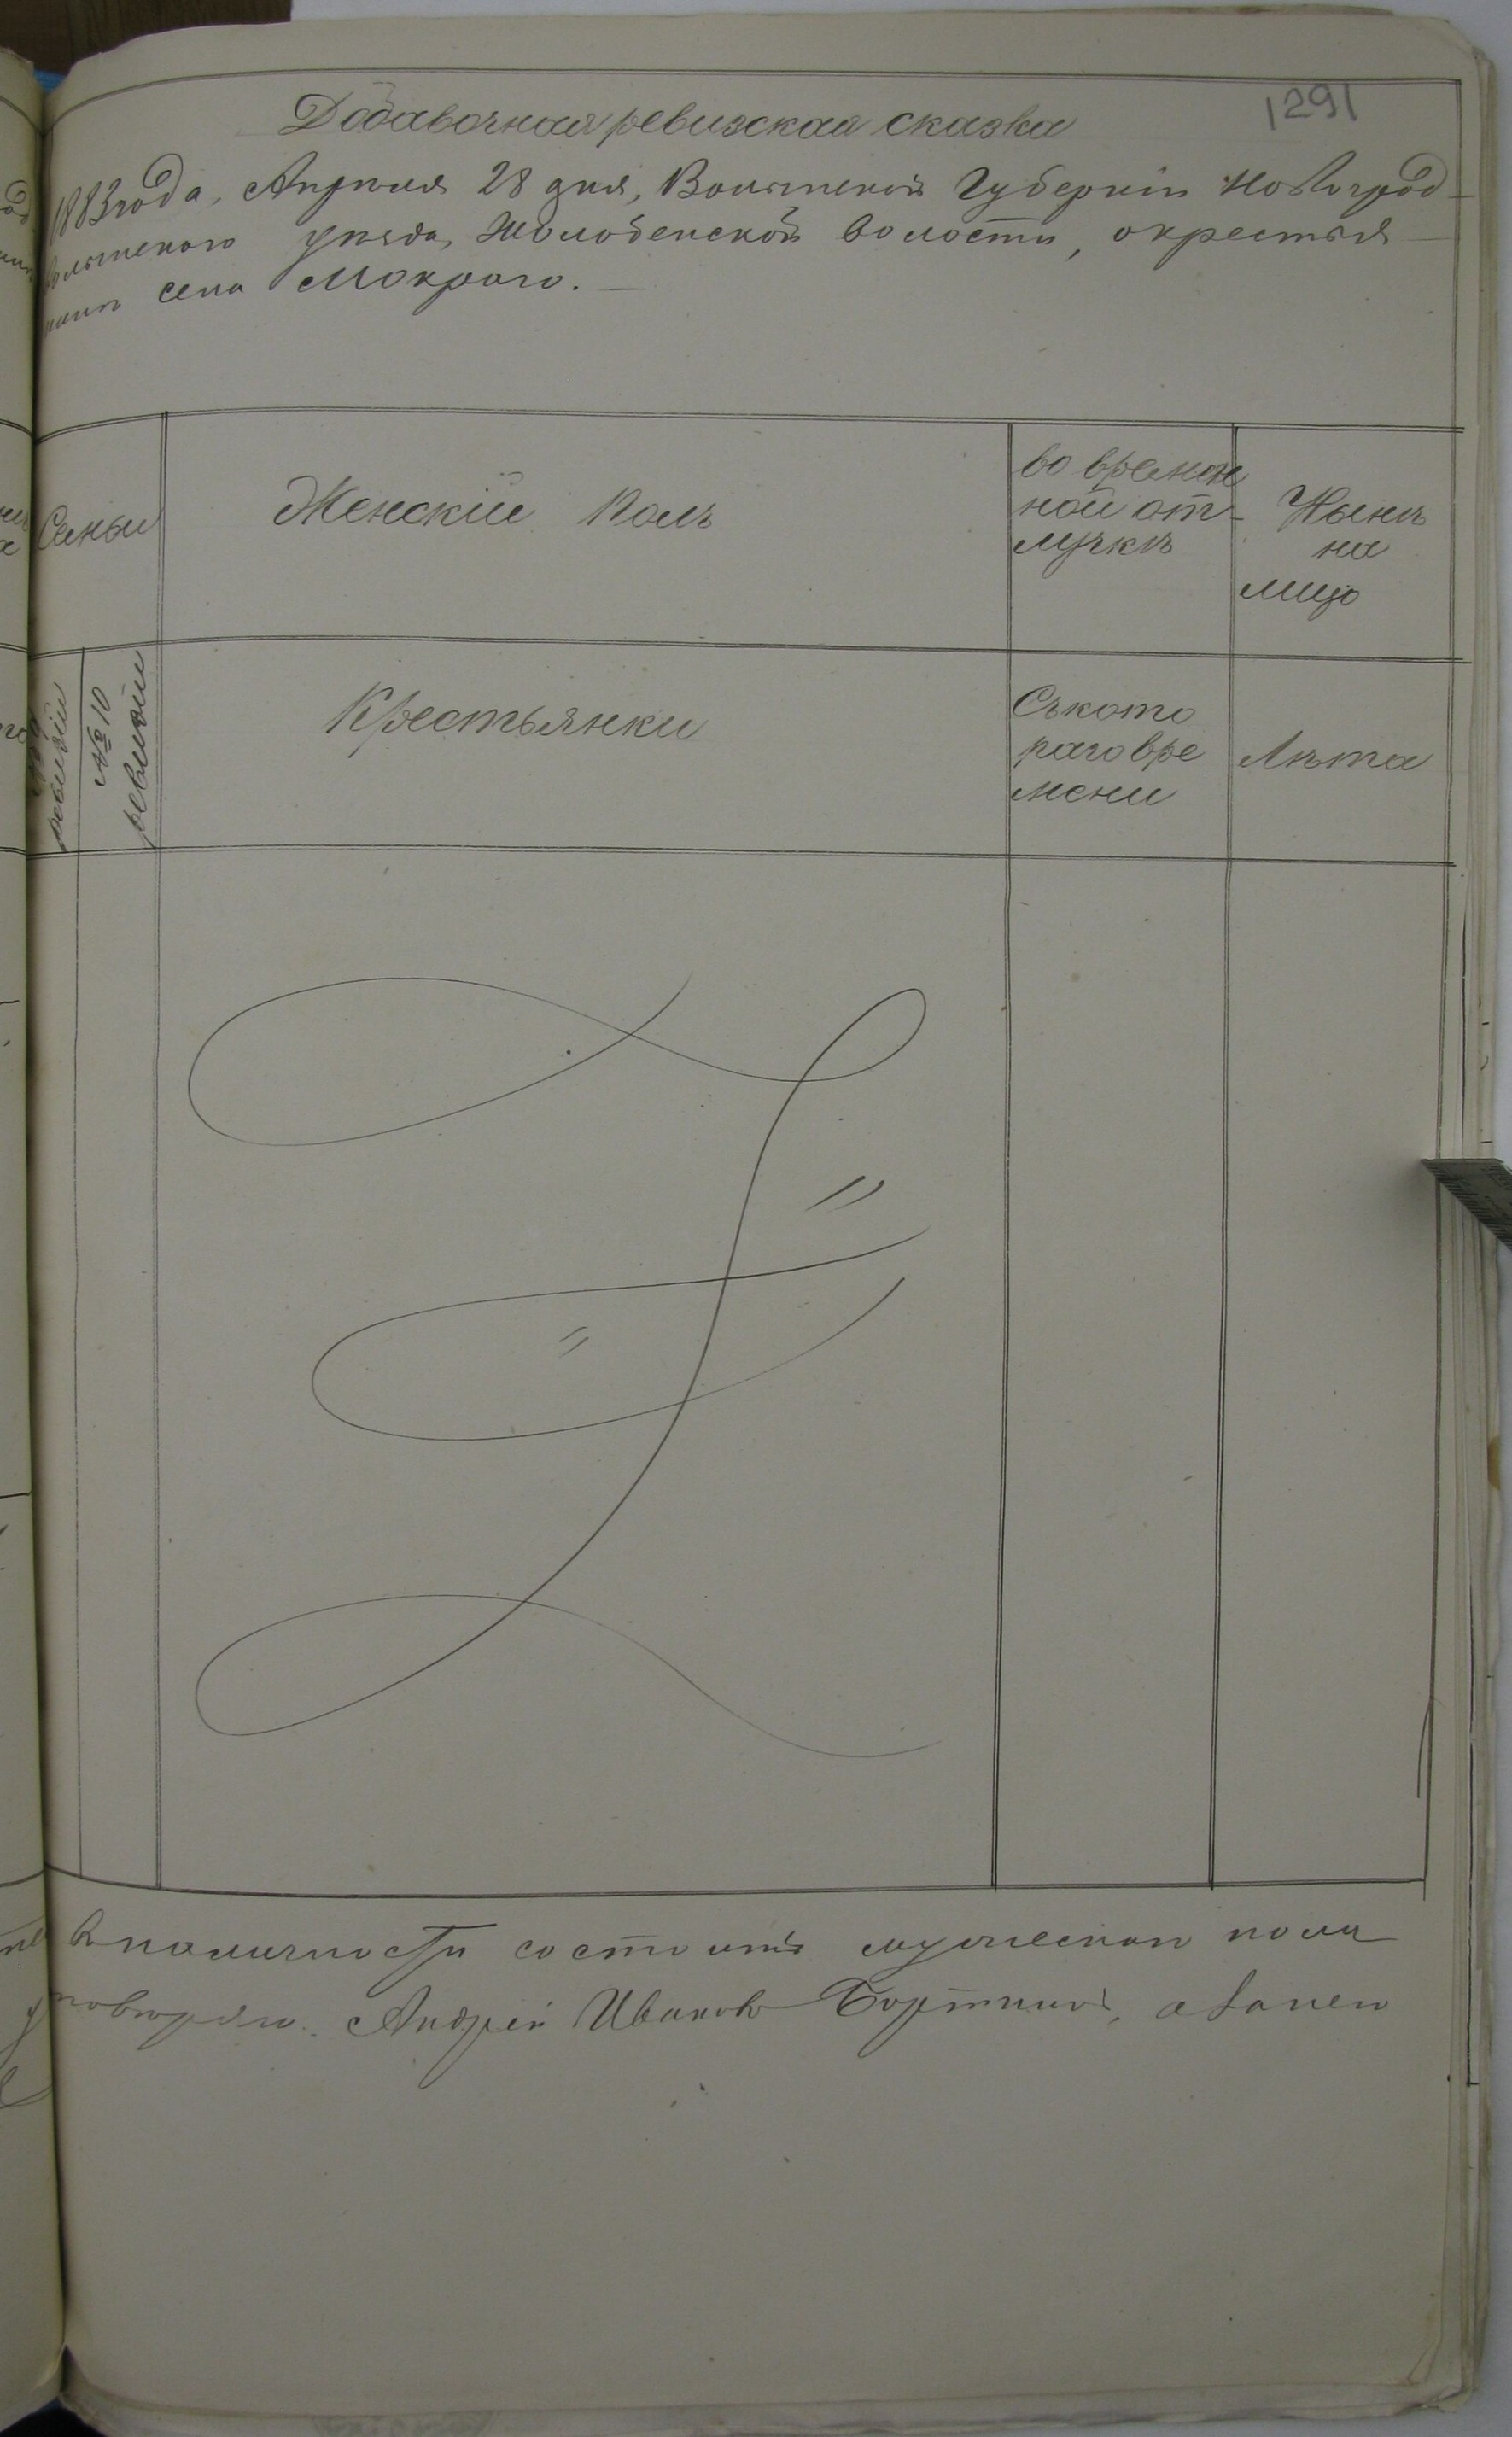 1291
Добавочная ревизская сказка
1883 года, Апреля 28 дня, Волынской Губерніи Новоград-
волынского уѣзда, Жолобенской волости, окрестья-
нинѣ села Мокраго. —
Семьи
Женскій Полъ
во времен
ной от-
лучкѣ
Нынѣ
на
лицо
ревизіи
№ 10
ревизіи
Крестьянки
Съкото
раго вре
мени
Лѣта
В наличности состоитъ мужескаго пола
Андрей Ивановъ